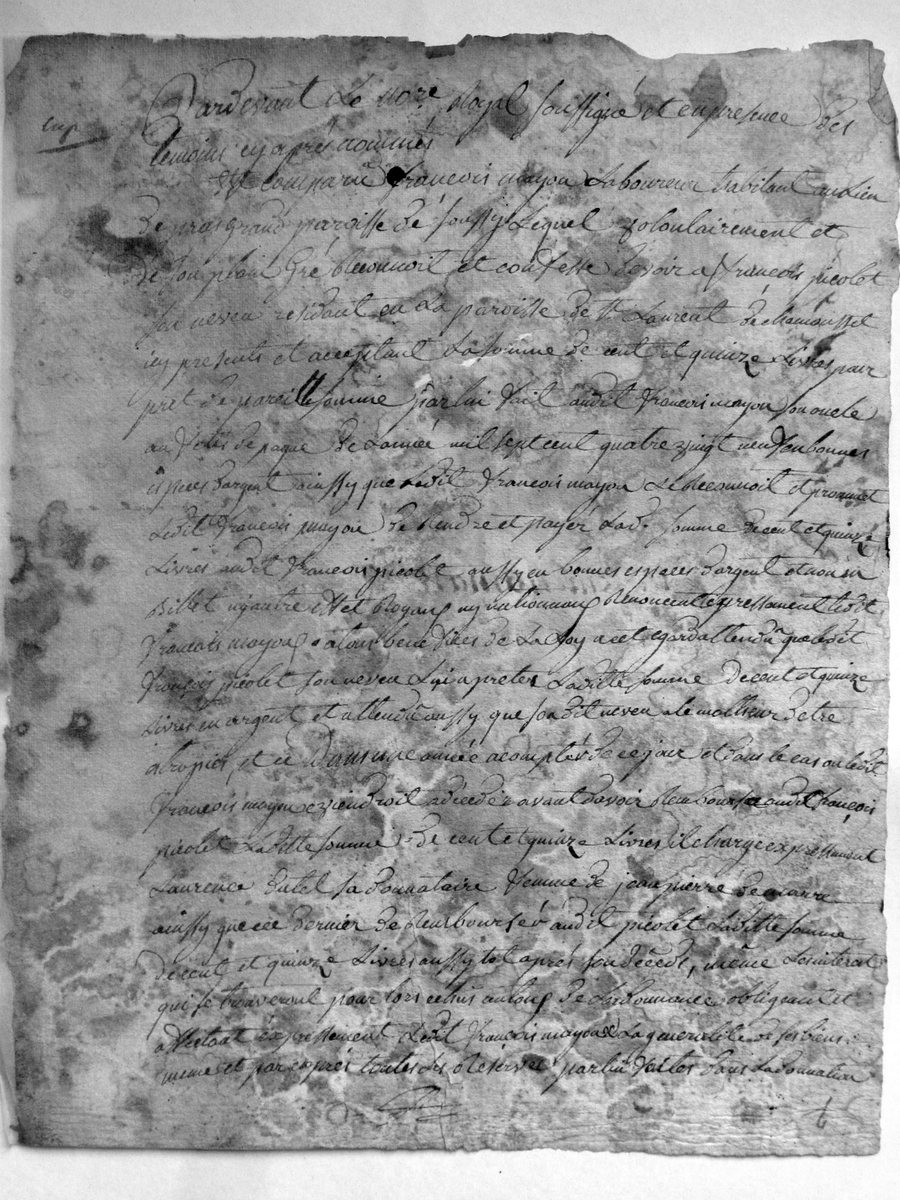 Pardevant Le nore Royal soussigné et en presence des
temoins cy après nommés
Est comparu François mayou Laboureur habitant au Lieu
De pras grand paroisse de soussy Lequel volontairement et
De son plain Gré Reconnoit et confesse devoir a françois picolet
son neveu residant en La paroisse de St Laurent de chamousset
icy presents et acceptant La somme de cent et quinze Livres pour
pret de pareille somme par lui fait audit François mayou son oncle
au fêtes de paque De Lannée mil sept cent quatre vingt neuf en bonnes
especes dargent ainssy que Ledit François mayou Le Reconnoit et promet
Ledit François mayou de Rendre et payér Lad. somme de cent et quinze
Livres audit François picolet aussy en bonnes especes dargent et non en
Billet ny autre effet Royaux ny nationnaux Renoncent expressement Ledit
François mayou a tous benefices de La Loy a cet egard attendu que Ledit
François picolet son neveu Lui a preter Laditte somme de cent et quinze
Livres en argent et attendu aussy que sondit neveu a le malheur detre
atropier, et ce Dans une année a comptér de ce jour et dans le cas ou Ledit
François mayou viendroit a decedér avant davoir Remboursée audit François
picolet Laditte somme De cent et quinze Livres il charge expressement
Laurence Dutel sa donnataire femme de jean pierre
ainssy que cee dernier de Remboursér audit picolet Laditte somme
De cent et quinze Livres aussy tot après son decéds, même Les interet
qui se trouveront pour lors echus au taux de Lordonnance obligeant et
affectant expressement Ledit François mayou La generalité de ses biens
meme et par exprés toutes les Reserves par lui faites dans La donnation